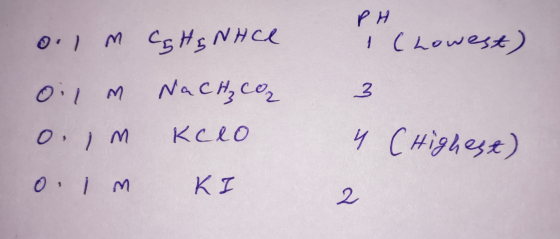 PH
0.1 M C₅H₅NHCl 1 (Lowest)
0.1 M NaCH₃CO₂ 3
0.1 M KClO 4 (Highest)
0.1 M KI 2